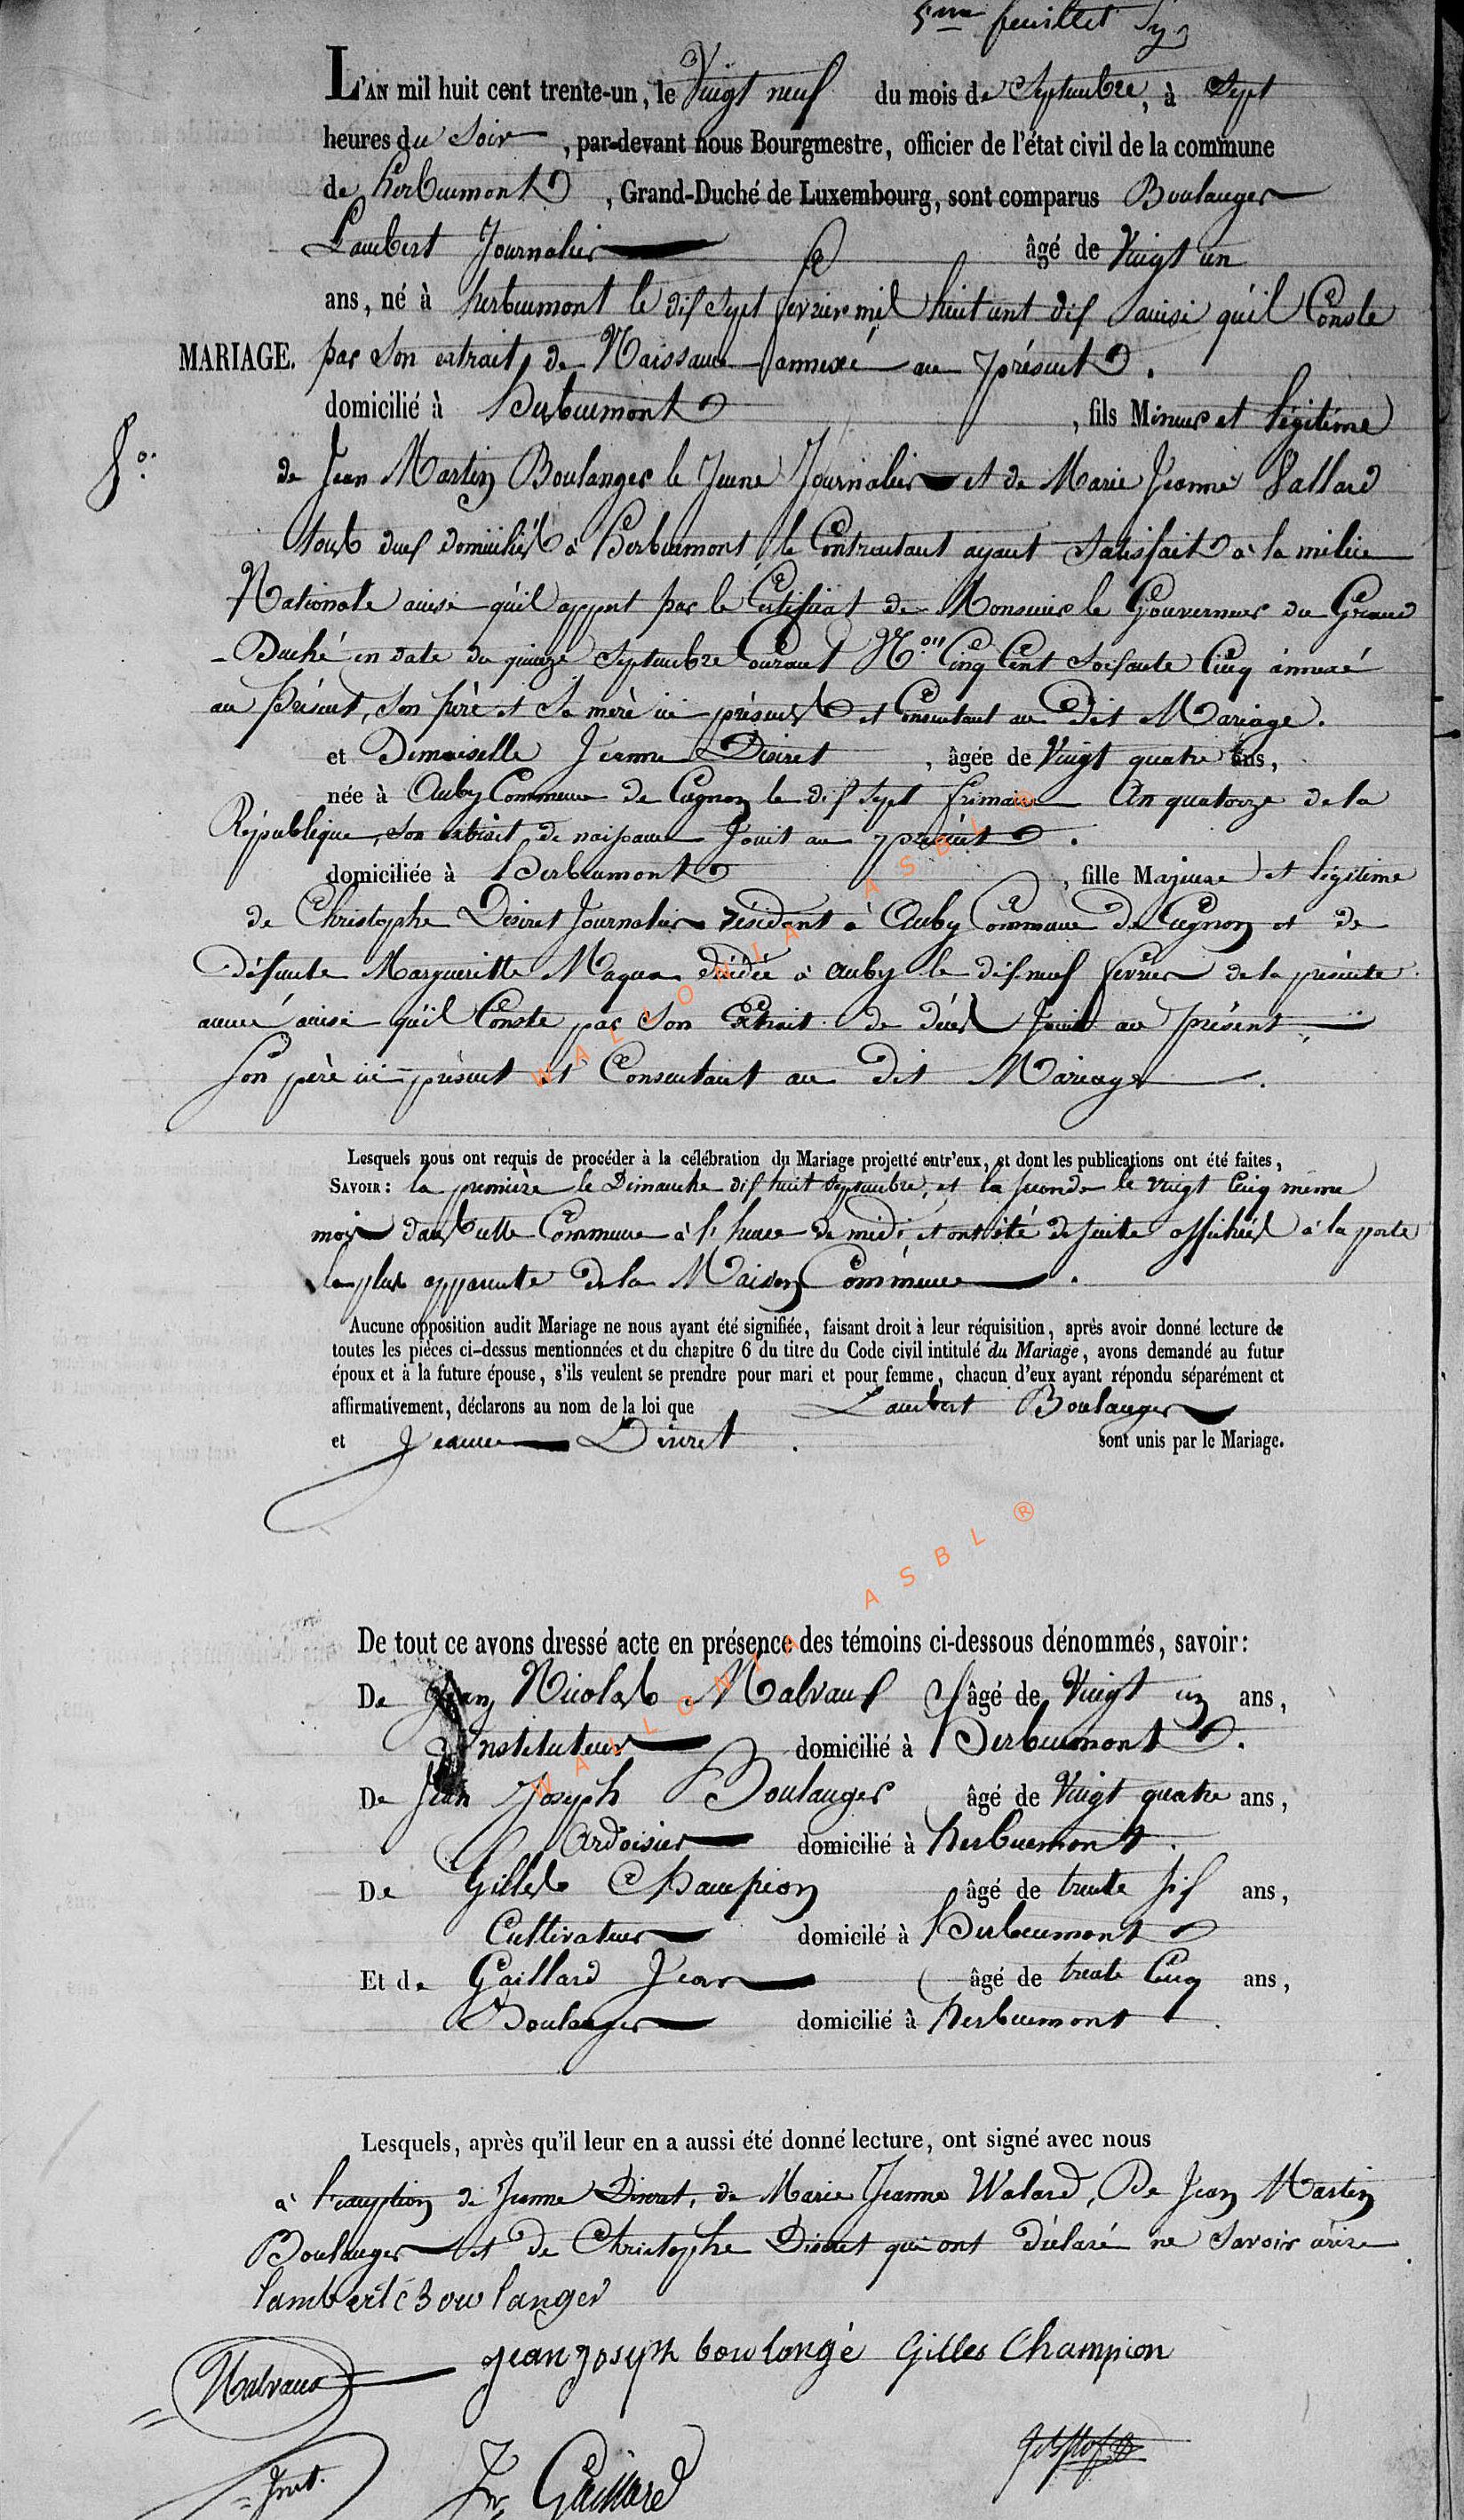 5me feuillet
L'AN mil huit cent trente-un, le Vingt neuf du mois de Septembre, à Sept
heures du Soir, par-devant nous Bourgmestre, officier de l'état civil de la commune
de herbeumont, Grand-Duché de Luxembourg, sont comparus Boulanger
Lambert Journalier âgé de Vingt un
ans, né à herbeumont le dix Sept fevrier mil huit cent dix ainsi qu'il Conste
MARIAGE. par Son extrait de Naissance annexé au présent.
domicilié à Herbeumont, fils Mineur et légitime
de Jean Martin Boulanger le Jeune Journalier et de Marie Jeanne Vallard
tous deux domiciliés à Herbeumont, le Contractant ayant Satisfait à la milice
Nationale ainsi qu'il appert par le Certificat de Monsieur le Gouverneur du Grand
-Duché en date du quinze Septembre Courant No Cinq Cent Soixante Cinq annexé
au Présent, Son père et Sa mère ici présents et Consentant au Dit Mariage.
et Demoiselle Jeanne Disiret, âgée de Vingt quatre ans,
née à Auby Commune de Cugnon le dix Sept frimaire An quatorze de la
République, Son extrait de naissance Joint au présent.
domiciliée à Herbeumont, fille Majeure et légitime
de Christophe Disiret Journalier résidant à Auby Commune de Cugnon et de
Défunte Margueritte Maqua décédée à Auby le dix neuf fevrier de la présente
année ainsi qu'il Conste par Son Extrait de décès Joint au présent
Son père ici présent et Consentant au Dit Mariage.
Lesquels nous ont requis de procéder à la célébration du Mariage projetté entr'eux, et dont les publications ont été faites,
SAVOIR: la première le Dimanche dix huit Septembre, et la Seconde le vingt Cinq même
mois dans cette Commune à l'heure de midi et ont été de suite affichées à la porte
la plus apparente de la Maison Commune.
Aucune opposition audit Mariage ne nous ayant été signifiée, faisant droit à leur réquisition, après avoir donné lecture de
toutes les pièces ci-dessus mentionnées et du chapitre 6 du titre du Code civil intitulé du Mariage, avons demandé au futur
époux et à la future épouse, s'ils veulent se prendre pour mari et pour femme, chacun d'eux ayant répondu séparément et
affirmativement, déclarons au nom de la loi que Lambert Boulanger
et Jeanne Disiret. sont unis par le Mariage.
De tout ce avons dressé acte en présence des témoins ci-dessous dénommés, savoir:
De Jean Nicolas Malvaux âgé de Vingt un ans,
Instituteur domicilié à Herbeumont.
De Jean Joseph Boulanger âgé de Vingt quatre ans,
Ardoisier domicilié à herbeumont.
De Gilles Champion âgé de trente six ans,
Cultivateur domicilé à Herbeumont
Et de Gaillard Jean âgé de trente Cinq ans,
Boulanger domicilié à herbeumont
Lesquels, après qu'il leur en a aussi été donné lecture, ont signé avec nous
à l'exception de Jeanne Disiret, de Marie Jeanne Walard, De Jean Martin
Boulanger et de Christophe Disiret qui ont déclaré ne Savoir écrire.
lambert Boulanger
jean joseph boulangé Gilles Champion
Malvaux
Inst.
Jn Gaillard
WALLONIA ASBL ®
WALLONIA ASBL ®